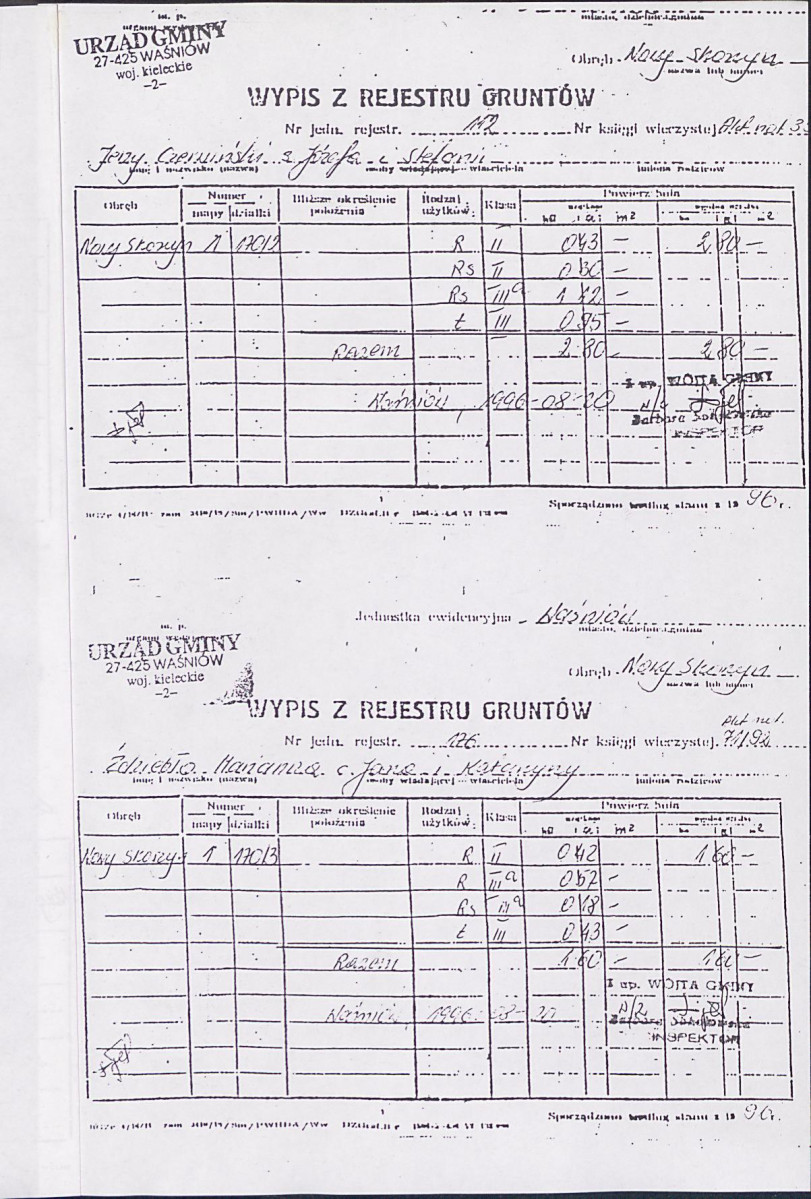 m. p.
URZĄD GMINY
27-425 WAŚNIÓW
woj. kieleckie
-2-
miasto, dzielnica, gmina
Obręb - Nowy Skoszyn
nazwa lub numer
WYPIS Z REJESTRU GRUNTÓW
Nr jedn. rejestr. 172 Nr księgi wieczystej Akt. not.
Jerzy Czerwiński s. Józefa i Stefanii
imię i nazwisko (nazwa) osoby władającej - właściciela imiona rodziców
Obręb Numer mapy działki Bliższe określenie położenia Rodzaj użytków Klasa Powierzchnia
ha a m2 ha a m2
Nowy Skoszyn 1 170/2 R II 0 43 - 2 80 -
Rs II 0 30 -
Rs IIIa 1 42 -
Ł III 0 95 -
Razem 2 80 - 2 80 -
z up. WÓJTA GMINY
Waśniów, 1996-08-20
Barbara
INSPEKTOR
Sporządzono według stanu z 1996 r.
Jednostka ewidencyjna - Waśniów
miasto, dzielnica, gmina
m. p.
URZĄD GMINY
27-425 WAŚNIÓW
woj. kieleckie
-2-
Obręb - Nowy Skoszyn
nazwa lub numer
WYPIS Z REJESTRU GRUNTÓW
Akt not.
Nr jedn. rejestr. 176 Nr księgi wieczystej 71/92
Ździebło Marianna c. Jana i Katarzyny
imię i nazwisko (nazwa) osoby władającej - właściciela imiona rodziców
Obręb Numer mapy działki Bliższe określenie położenia Rodzaj użytków Klasa Powierzchnia
ha a m2 ha a m2
Nowy Skoszyn 1 170/3 R II 0 42 1 60 -
R IIIa 0 57 -
Rs IIIa 0 18 -
Ł III 0 43 -
Razem 1 60 - 1 60 -
z up. WÓJTA GMINY
Waśniów, 1996-08-20
Barbara
INSPEKTOR
Sporządzono według stanu z 1996 r.